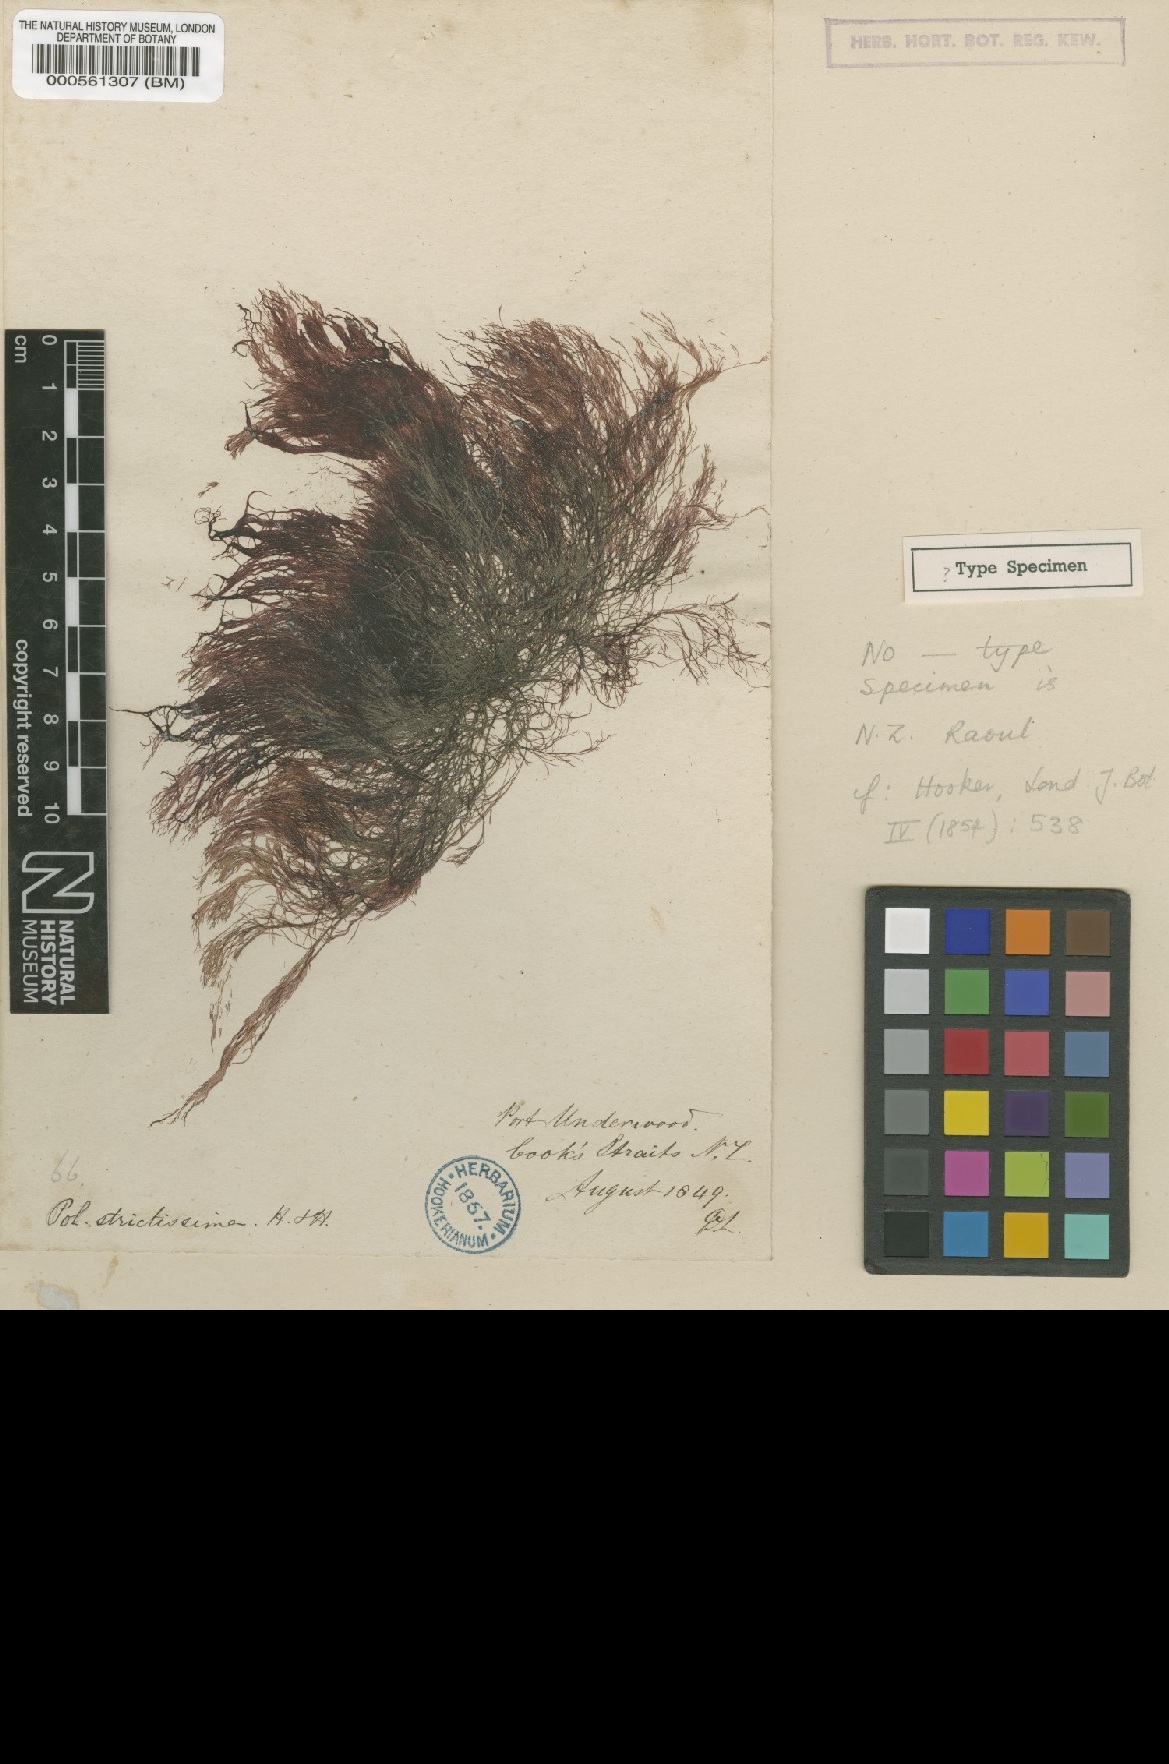 THE NATURAL HISTORY MUSEUM, LONDON
DEPARTMENT OF BOTANY
000561307 (BM)
HERB. HORT. BOT. REG. KEW.
cm
0
1
2
3
4
5
6
7
8
9
10
copyright reserved
NATURAL
HISTORY
MUSEUM
? Type Specimen
No — type
Specimen is
N.Z. Raoul
cf: Hooker, Lond J. Bot
IV (1854) : 538
Port Underwood.
Cook's Straits N.Z.
August 1849.
66.
Pol. strictissima. H. & H.
HERBARIUM HOOKERIANUM
1867.